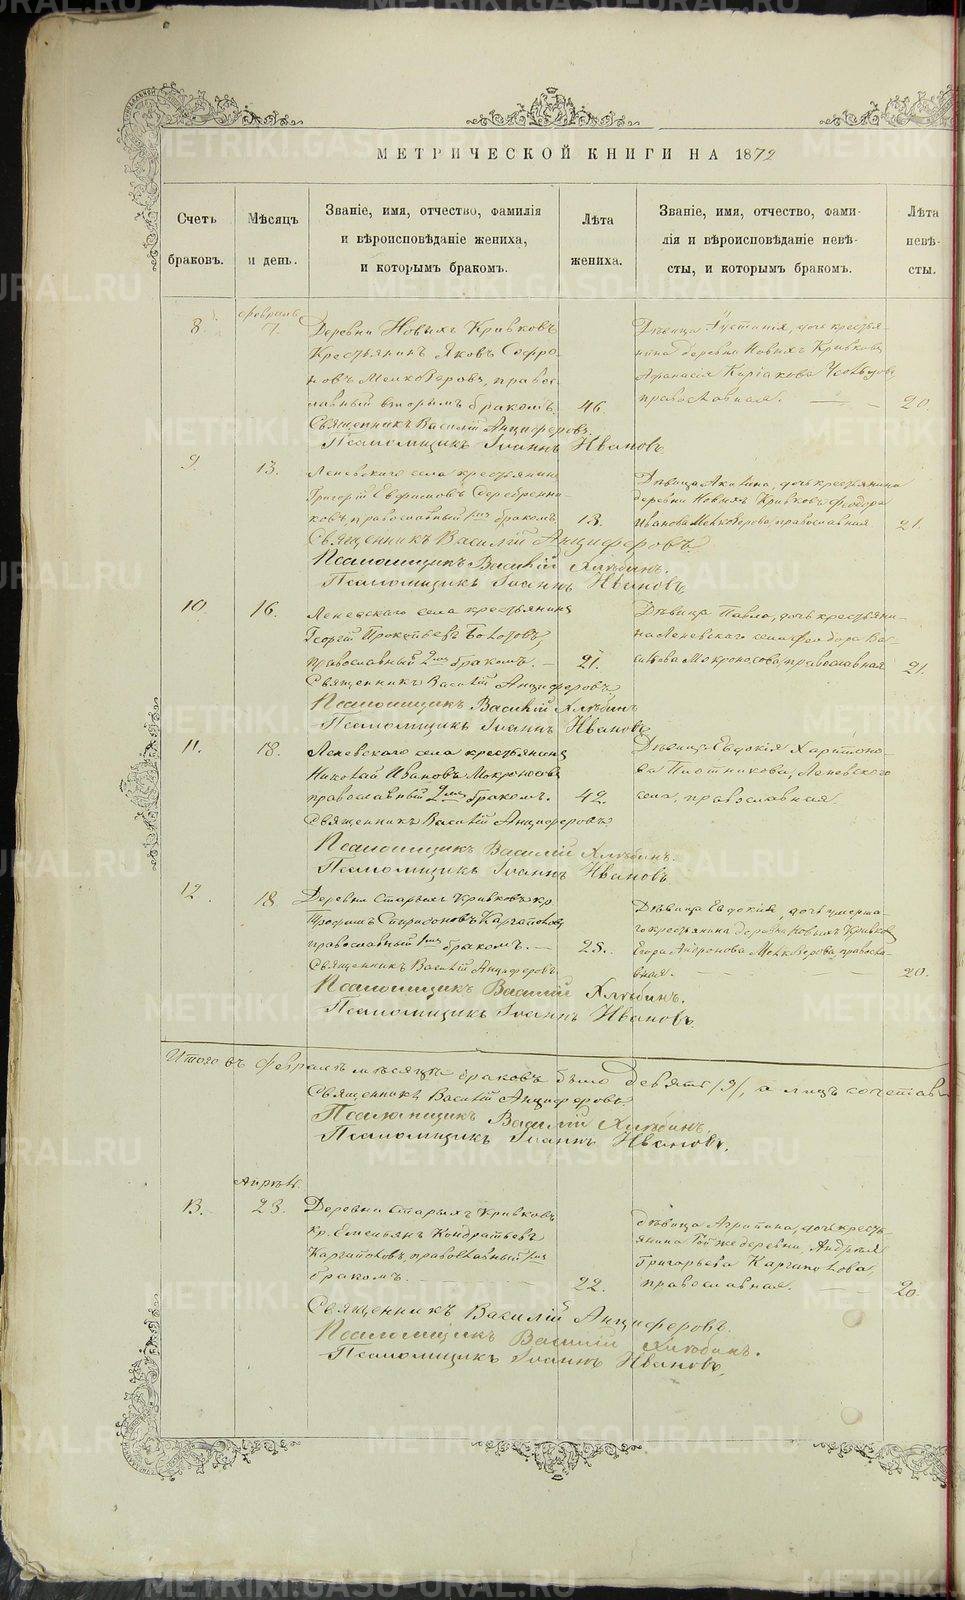 МЕТРИЧЕСКОЙ КНИГИ НА 1872
Счетъ браковъ.
Мѣсяцъ и день.
Званіе, имя, отчество, фамилія
и вѣроисповѣданіе жениха,
и которымъ бракомъ.
Лѣта жениха.
Званіе, имя, отчество, фами-
лія и вѣроисповѣданіе невѣ-
сты, и которымъ бракомъ.
Лѣта невѣ-
сты.
8.
февраль
7.
Деревни Новыхъ Кривковъ
Крестьянинъ Яковъ Софро-
новъ Мелкозеровъ, правос-
лавный вторымъ бракомъ.
46.
Дѣвица Устинія, дочь крестья-
нина деревни Новыхъ Кривковъ
Афанасія Киріакова
православная.
20
Священникъ Василій Анциферовъ.
Псаломщикъ Іоаннъ Ивановъ
9.
13.
Леневскаго села крестьянинъ
Григорій Евфимовъ Серебренни-
ковъ, православный 1мъ бракомъ
18.
Дѣвица Акилина, дочь крестьянина
деревни Новыхъ Кривковъ Феодора
Иванова Мелкозерова, православная
21.
Священникъ Василій Анциферовъ
Псаломщикъ Василій Хлѣбинъ.
Псаломщикъ Іоаннъ Ивановъ.
10.
16.
Леневскаго села крестьянинъ
Георгій Прокопьевъ Болотовъ,
православный 2мъ бракомъ.
21.
Дѣвица Павла, дочь крестьяни-
на Леневскаго села Феодора Ва-
сильева Мокроносова, православная
21.
Священникъ Василій Анциферовъ,
Псаломщикъ Василій Хлѣбинъ
Псаломщикъ Іоаннъ Ивановъ
11.
18.
Леневскаго села крестьянинъ
Николай Ивановъ Мокроносовъ
православный 2мъ бракомъ.
42.
Дѣвица Евдокія Харитоно-
ва Плотникова, Леневскаго
села, православная.
Священникъ Василій Анциферовъ
Псаломщикъ Василій Хлѣбинъ.
Псаломщикъ Іоаннъ Ивановъ
12.
18
Деревни Старыхъ Кривковъ кр.
Трофимъ Спиридоновъ Каргаполовъ
православный 1мъ бракомъ.
25.
Дѣвица Евдокія, дочь умерша-
го крестьянина деревни Новыхъ Кривковъ
Егора Андронова Мелкозерова, правосла-
вная.
20.
Священникъ Василій Анциферовъ
Псаломщикъ Василій Хлѣбинъ.
Псаломщикъ Іоаннъ Ивановъ.
Итого въ Февралѣ мѣсяцѣ браковъ было девять /9/, а лицъ сочетав
Священникъ Василій Анциферовъ
Псаломщикъ Василій Хлѣбинъ.
Псаломщикъ Іоаннъ Ивановъ.
13.
Апрѣль.
23.
Деревни Старыхъ Кривковъ
кр. Емельянъ Кондратьевъ
Каргаполовъ, православный 1мъ
бракомъ.
22.
дѣвица Агрипина, дочь кресть-
янина той же деревни, Андрея
Григорьева Каргаполова,
православная.
20.
Священникъ Василій Анциферовъ.
Псаломщикъ Василій Хлѣбинъ.
Псаломщикъ Іоаннъ Ивановъ,
METRIKI.GASO-URAL.RU